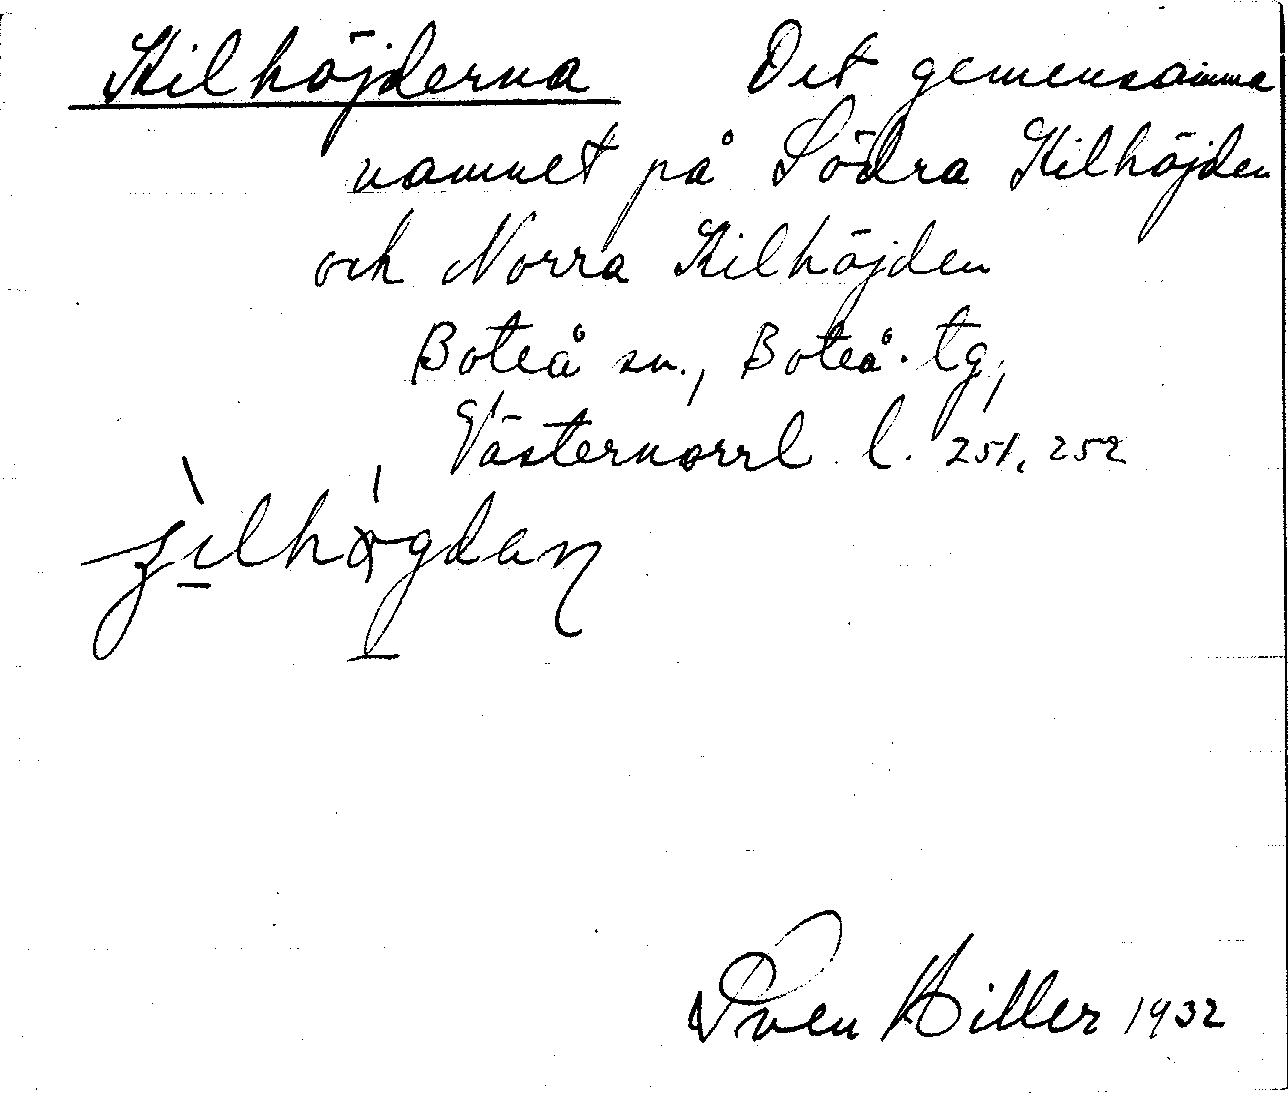 Kilhöjderna Det gemensamma
namnet på Södra Kilhöjden
och Norra Kilhöjden
Boteå sn., Boteå tg,
Västernorrl l. 251, 252
Sven Hiller 1932